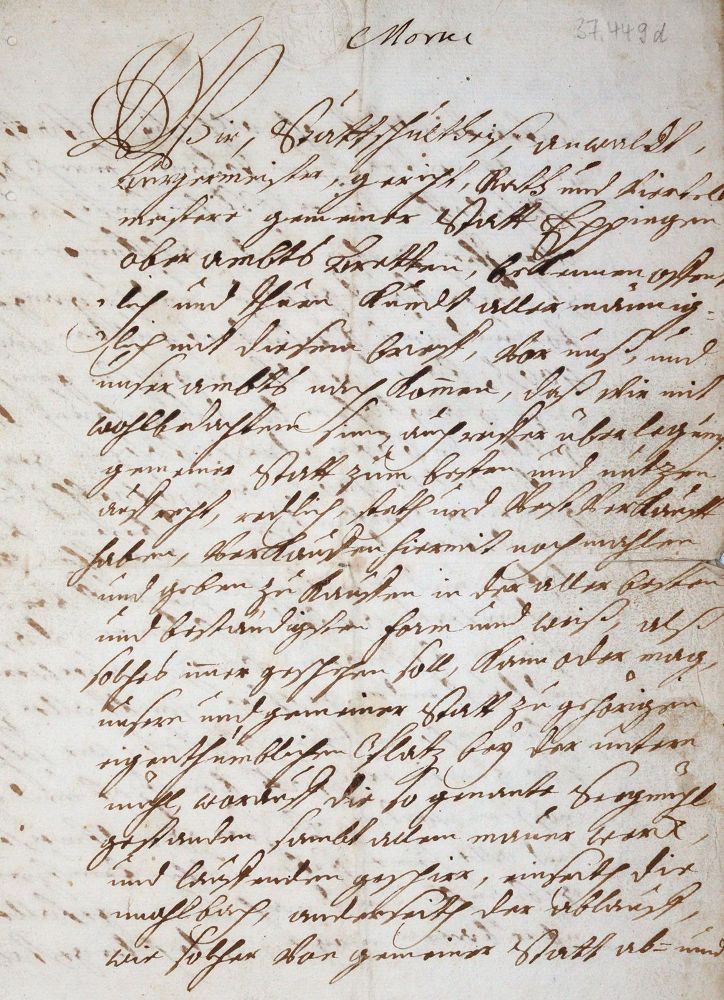 37.449d
Wir, Stattschultheiß, anwaldt,
Burgermeister, gericht, Rath und Viertel
meistere gemeiner Statt Eppingen
ober ambts Bretten, bekennen offent
lich und thuen Kundt aller männig-
lich mit diesem brieff, Vor unß, und
unser ambts nach Kommen, daß wir mit
wohlbedachtem sinn, auch reiffer überlegung
gemeiner Statt zum besten und nutzen
auffrecht, redlich, steth und Vest Verkaufft
haben, Verkauffen hiermit nochmahlen
und geben zu Kauffen in der aller besten
und beständigsten form und weiß, alß
solches immer geschehen soll, Kann oder mag,
unsern und gemeiner Statt zu gehörigen
eigenthümblichen Platz bey der untern
mühl, worauff die so genante Segmühl
gestanden sambt allem mauer werck,
und lauffenden geschirr, einseith die
muhlbach, anderseith der ablauff,
wie solcher Von gemeiner Statt ab= und